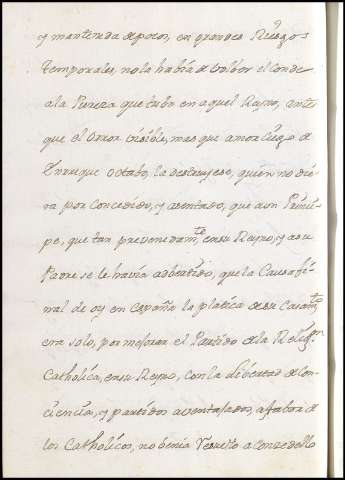 y mantenida de pocos, en grandes Riesgos
temporales, no la había de volver el Conde
a la Pureza que tubo en aquel Reyno, antes
que el error visible, mas que amor ciego de
Enrique Octabo, la destruyese, quien no die
ra por concedido, y asentado, que a un Princi
pe, que tan prevenedam.te en su Reyno, y a su
Padre se le havia adbertido, que la Causa fi
nal de oy en españa la platica de su Casam.to
era solo, por mejorar el Partido de la Relig.on
Catholica, en su Reyno, con la libertad de Con
ciencia, y partidos aventajados, a fabor de
los Catholicos, no benia Resuelto a concedello